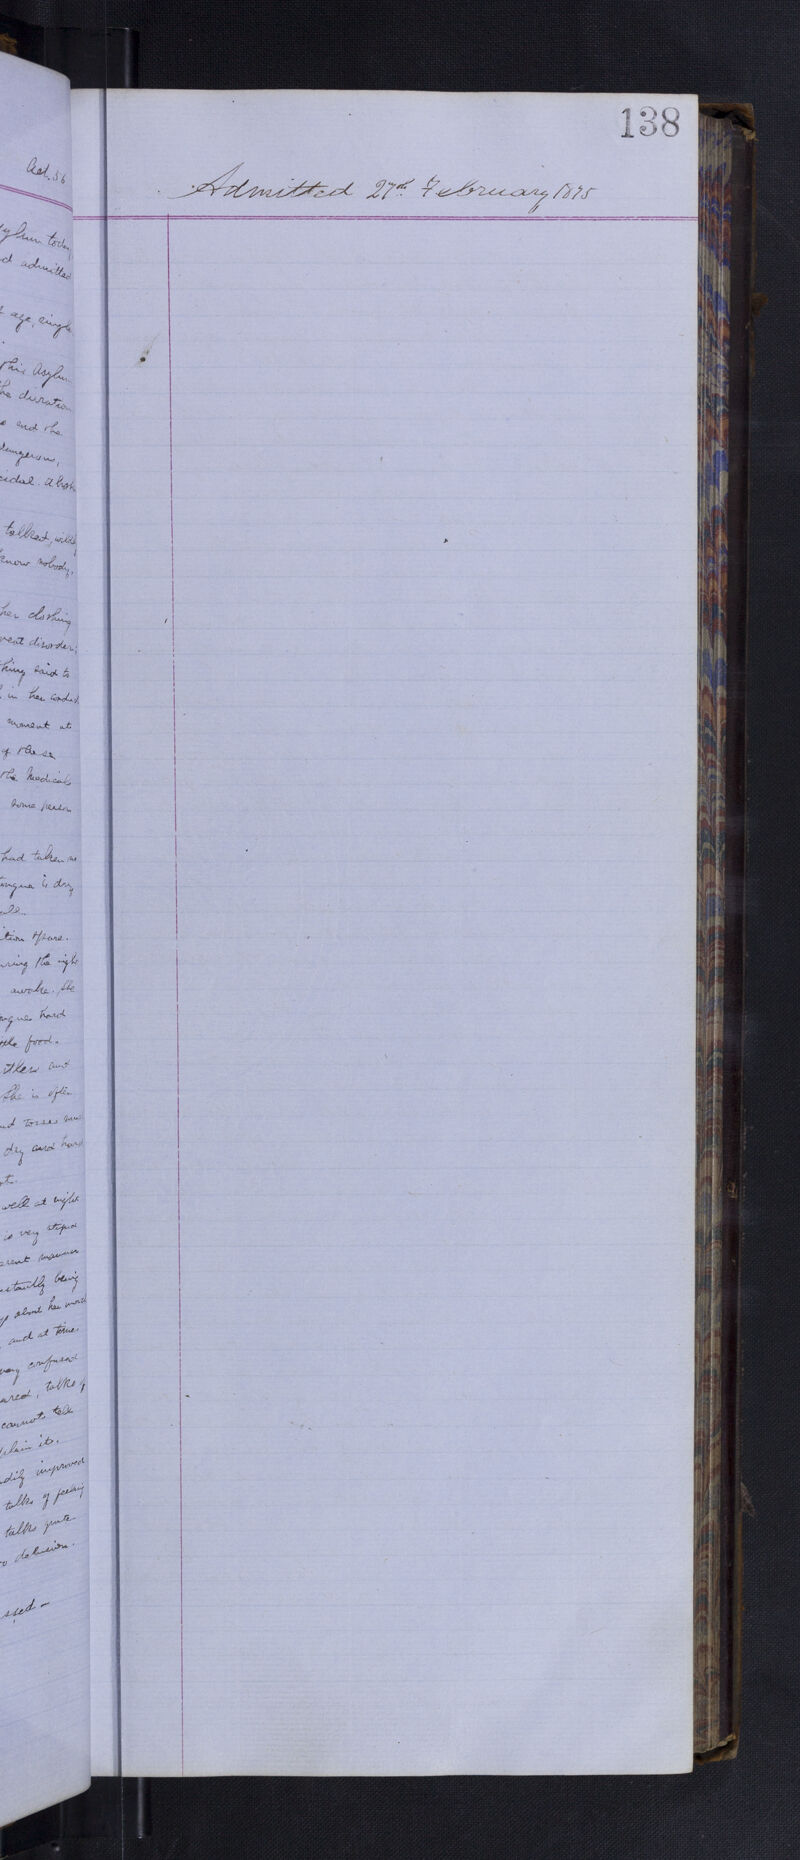 aet. 56
ylum today
d admitted
age, single
this Asylum
the duration
and the
dangerous,
cidal. a brok
talked, wild
know nobody.
her clothing
reat disorder;
thing said to
in her conduct
moment at
of these
the Medical
some person
had taken no
ongue is dry
ition spare.
uring the night
awake. She
ongue hard
ttle food.
She is often
dry and hard
well at night
is very stupid
erent manner
stantly being
about her mouth
and at times
very confused
talks of
cannot tell
plain it.
dily improved
talks of feeling
talks quite
o delusion.
138
Admitted 27th February 1875